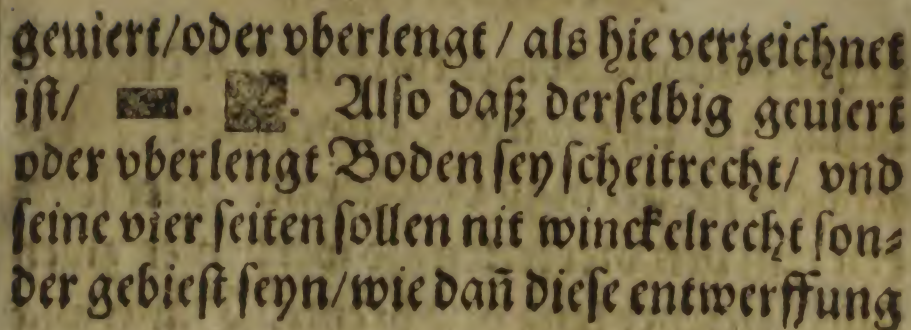 geuiert/oder vberlengt / als hie verzeichnet
ist/ . . Also daß derselbig geuiert
oder vberlengt Boden sey scheitrecht/ vnd
seine vier seiten sollen nit winckelrecht son⸗
der gebiest seyn/wie dañ diese entwerffung